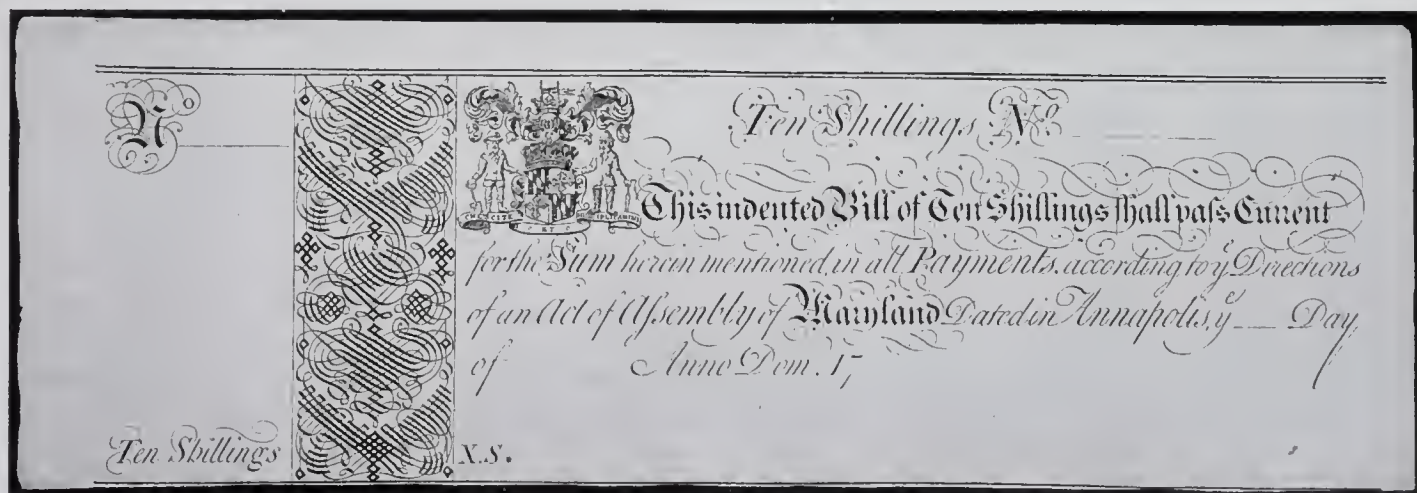 No
Ten Shillings No
This indented Bill of Ten Shillings shall paſs Current
for the Sum herein mentioned, in all Payments, according to yͤ Directions
of an Act of Aſsembly of Maryland Dated in Annapolis, yͤ Day
of Anno Dom. 17
Ten Shillings X.S.